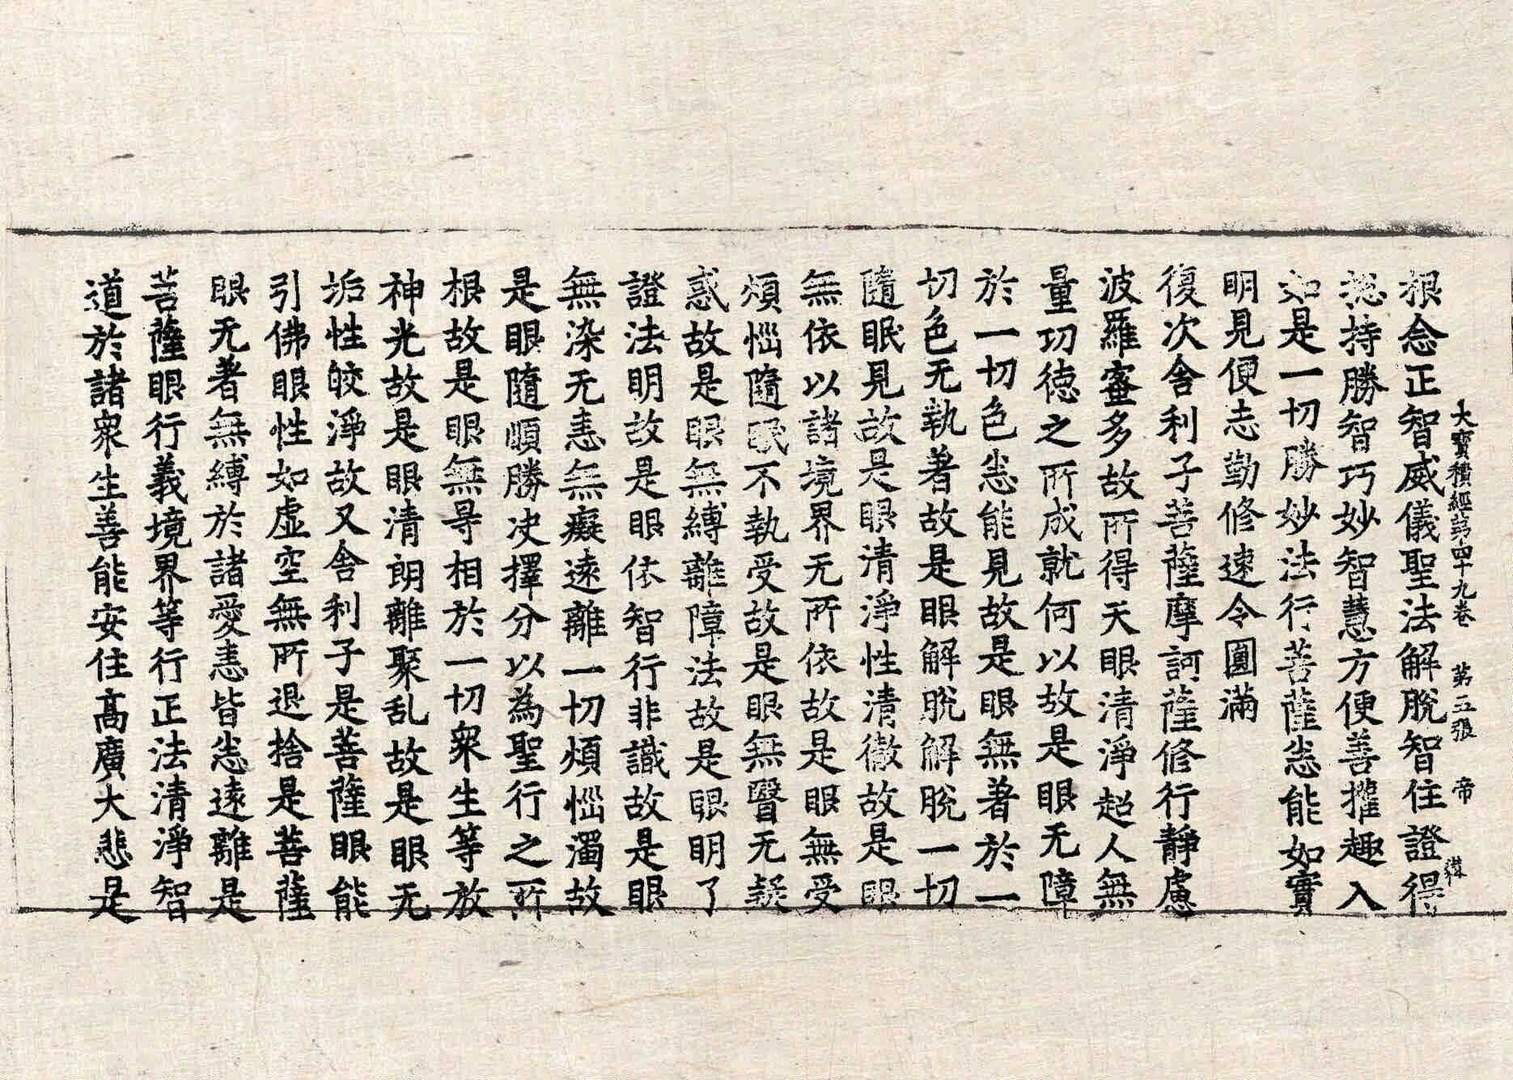 大寶積經第四十九卷　第五張　帝
根念正智威儀聖法解脫智住證得
揔持勝智巧妙智慧方便善攉趣入
如是一切勝妙法行菩薩悉能如實
明見便志勤修速令圓滿
復次舍利子菩薩摩訶薩修行靜慮
波羅蜜多故所得天眼清淨超人無
量功德之所成就何以故是眼无障
於一切色悉能見故是眼無著於一
切色无執著故是眼解脫解脫一切
隨眠見故是眼清淨性清徹故是眼
無依以諸境界无所依故是眼無受
煩惱隨眠不執受故是眼無翳无疑
惑故是眼無縛離障法故是眼明了
證法明故是眼依智行非識故是眼
無染无恚無癡遠離一切煩惱濁故
是眼隨順勝决擇分以為聖行之所
根故是眼無㝵相於一切衆生等放
神光故是眼清朗離聚乱故是眼无
垢性皎淨故又舍利子是菩薩眼能
引佛眼性如虛空無所退捨是菩薩
眼无著無縛於諸愛恚皆悉遠離是
菩薩眼行義境界等行正法清淨智
道於諸衆生善能安住高廣大悲是